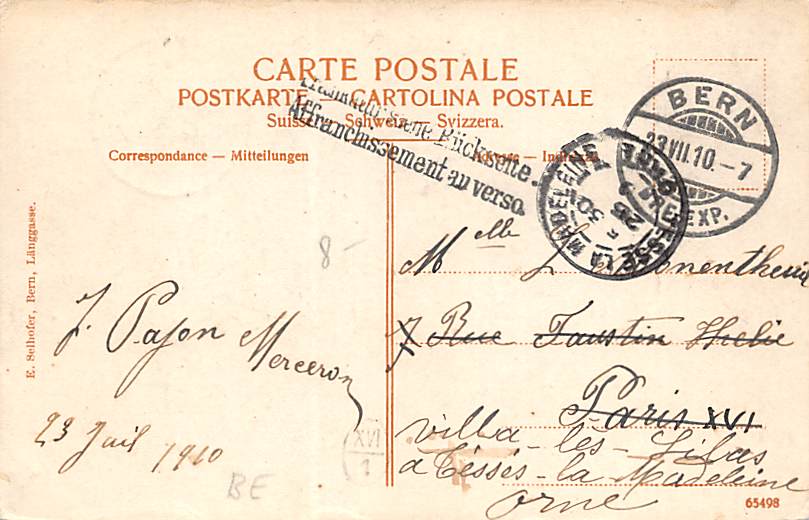 CARTE POSTALE
POSTKARTE — CARTOLINA POSTALE
Suisse — Schweiz — Svizzera.
Correspondance — Mitteilungen
Adresse — Indirizzo
Rückseite.
Affranchissement au verso.
BERN
23.VII.10.—7
EXP.
LA MADELEINE
30
25
8-
E. Selhofer, Bern, Länggasse.
J. Pajon Merceron
23 Juil 1910
Melle
7 Rue Faustin Helie
Paris XVI
villa-les-Lilas
a Tessé-la Madeleine
Orne
XVI
1
BE
65498